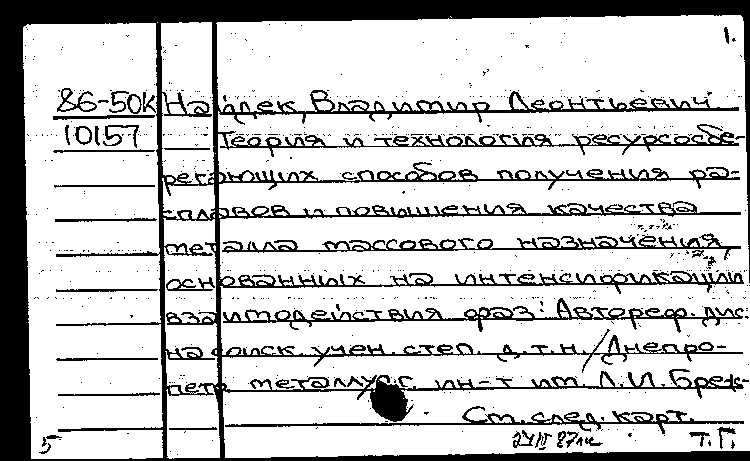 1.
86-50к Найдек, Владимир Леонтьевич
10157 Теория и технология ресурсосбе-
регающих способов получения ра-
сплавов и повышения качества
металла массового назначения,
основанных на интенсификации
взаимодействия фаз: Автореф. дис.
на соиск. учен. степ. д.т.н./Днепро-
петр металлург. ин-т им. Л.И. Бреж-
Ст. след. карт.
5 Т.П.